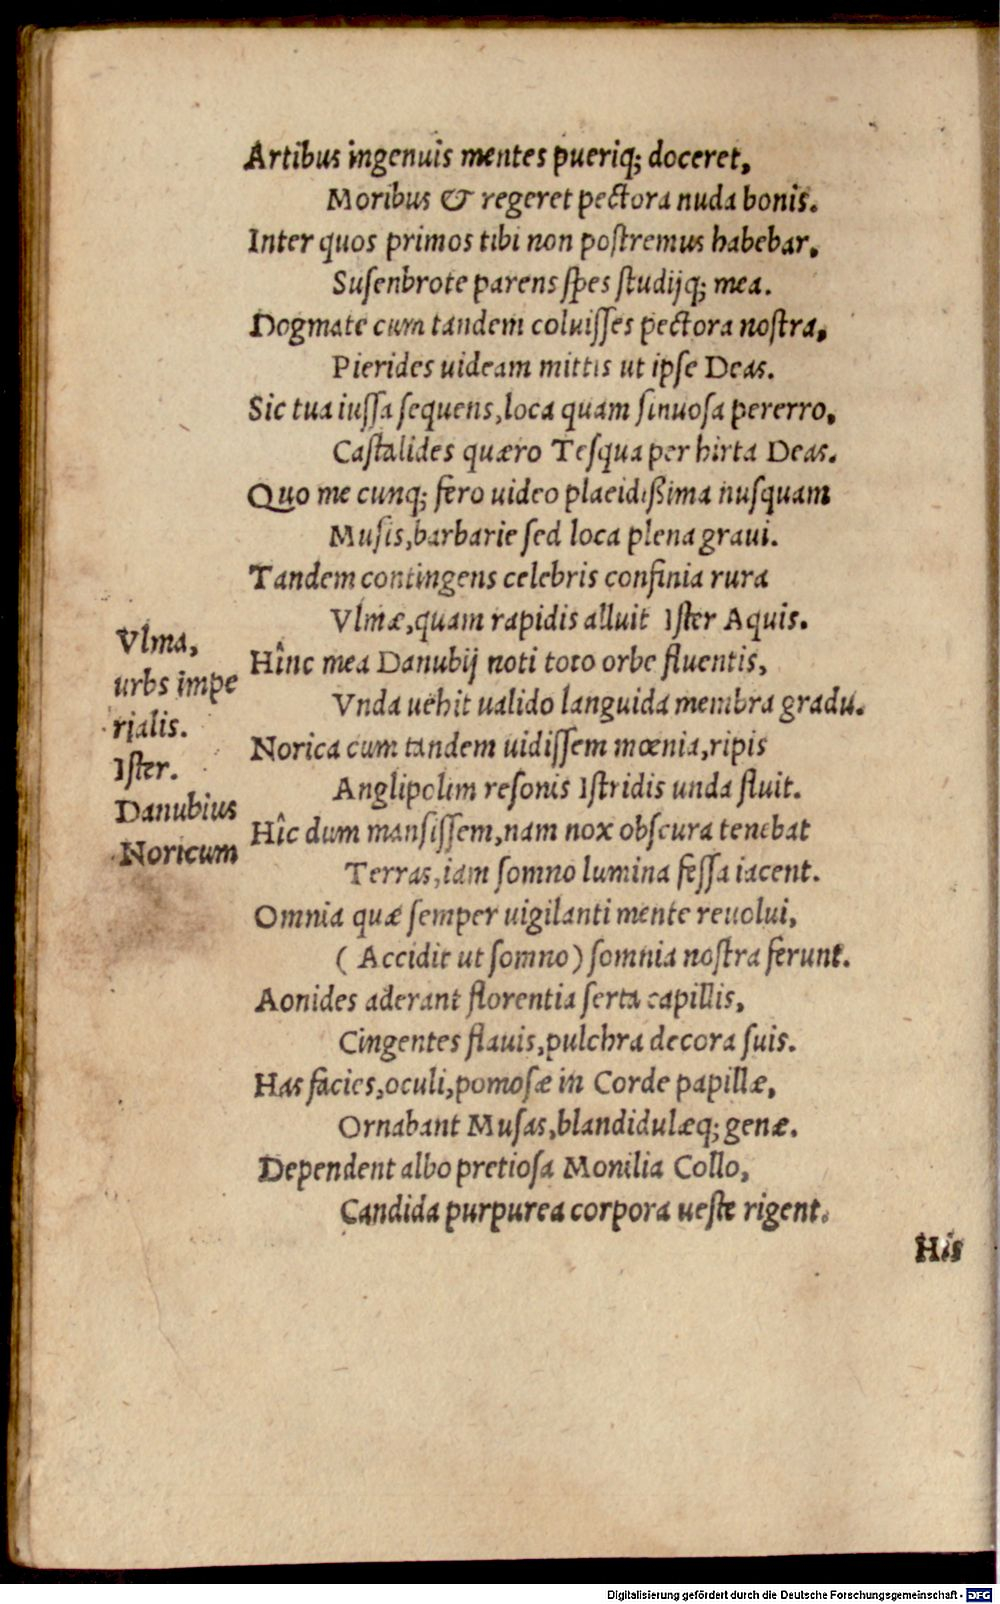 Artibus ingenuis mentes pueriq; doceret,
Moribus & regeret pectora nuda bonis.
Inter quos primos tibi non postremus habebar,
Susenbrote parens spes studijq; mea.
Dogmate cum tandem coluisses pectora nostra,
Pierides uideam mittis ut ipse Deas.
Sic tua iussa sequens, loca quam sinuosa pererro,
Castalides quæro Tesqua per hirta Deas.
Quo me cunq; fero uideo placidißima nusquam
Musis, barbarie sed loca plena graui.
Tandem contingens celebris confinia rura
Vlmæ, quam rapidis alluit Ister Aquis.
Hînc mea Danubij noti toto orbe fluentis,
Vnda uehit ualido languida membra gradu.
Norica cum tandem uidissem mœnia, ripis
Anglipolim resonis Istridis unda fluit.
Hîc dum mansissem, nam nox obscura tenebat
Terras, iam somno lumina fessa iacent.
Omnia quæ semper uigilanti mente reuolui,
( Accidit ut somno ) somnia nostra ferunt.
Aonides aderant florentia serta capillis,
Cingentes flauis, pulchra decora suis.
Has facies, oculi, pomosæ in Corde papillæ,
Ornabant Musas, blandidulæq; genæ.
Dependent albo pretiosa Monilia Collo,
Candida purpurea corpora ueste rigent.
His
Vlma,
urbs impe
rialis.
Ister.
Danubius
Noricum
Digitalisierung gefördert durch die Deutsche Forschungsgemeinschaft - DFG